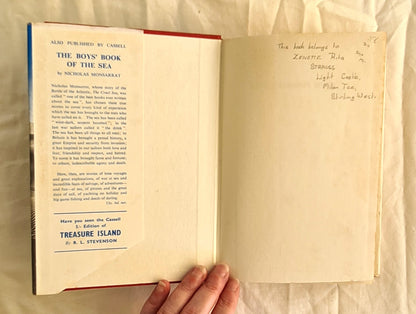 ALSO PUBLISHED BY CASSELL
THE BOYS' BOOK
OF THE SEA
by NICHOLAS MONSARRAT
Nicholas Monsarrat, whose story of the
Battle of the Atlantic, The Cruel Sea, was
called "one of the best books ever written
about the sea", has chosen these true
stories to cover every kind of experience
which the sea has brought to the men who
have sailed on it. The sea has been called
"wine-dark, women breasted"; in the
last war sailors called it "the drink".
The sea has been all things to all men: to
Britain it has brought a proud history, a
great Empire and security from invasion;
it has inspired in our sailors both love and
fear, friendship and respect, any hatred.
To some it has brought fame and fortune,
to others, indescribable agony and death.
Here, then, are stories of brave voyages
and great explorations, of war at sea and
incredible feats of salvage, of adventures—
and fire—at sea, of pirates and the great
days of sail, of yachting on holiday and
big game fishing and death of daring.
Have you seen the Cassell
Edition of
TREASURE ISLAND
By R. L. STEVENSON
This book belongs to
Rita
STRAUSS
Light Castle,
Milton Tce,